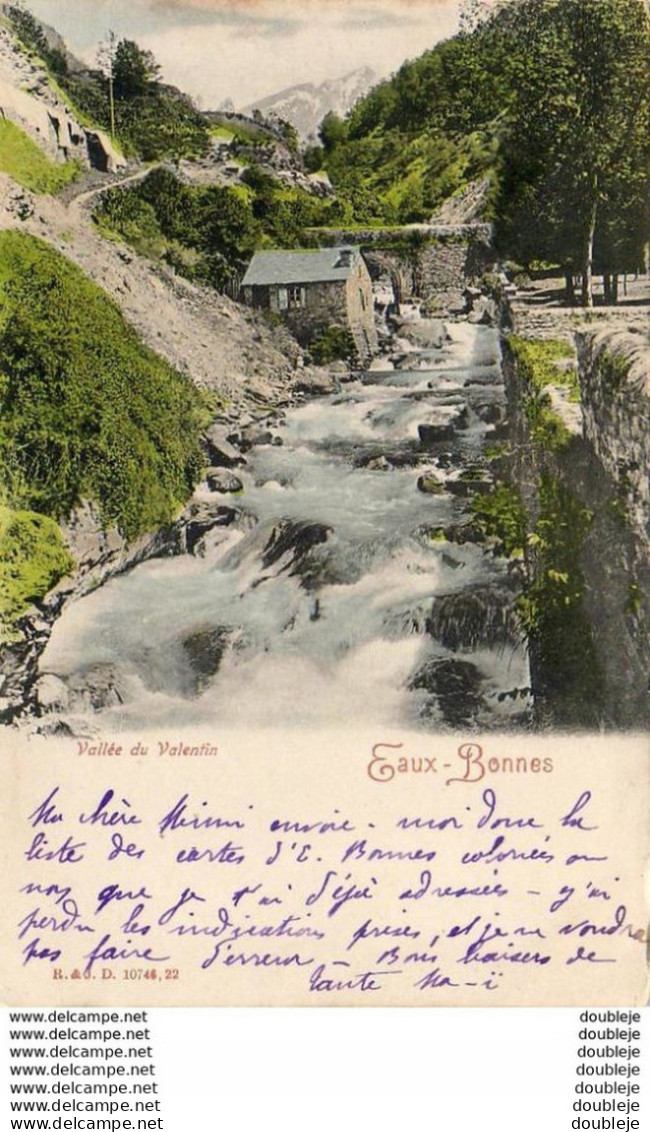 Vallée du Valentin
Eaux-Bonnes
Ma chère Mimi envoie-moi donc la
liste des cartes d'E. Bonnes coloriées ou
nos que je t'ai déjà adressées - j'ai
perdu les indications prises, et je ne voudrais
pas faire d'erreur - Bons baisers de
Tante Ma-ï
R. & J. D. 10746, 22
www.delcampe.net doubleje
www.delcampe.net doubleje
www.delcampe.net doubleje
www.delcampe.net doubleje
www.delcampe.net doubleje
www.delcampe.net doubleje
www.delcampe.net doubleje